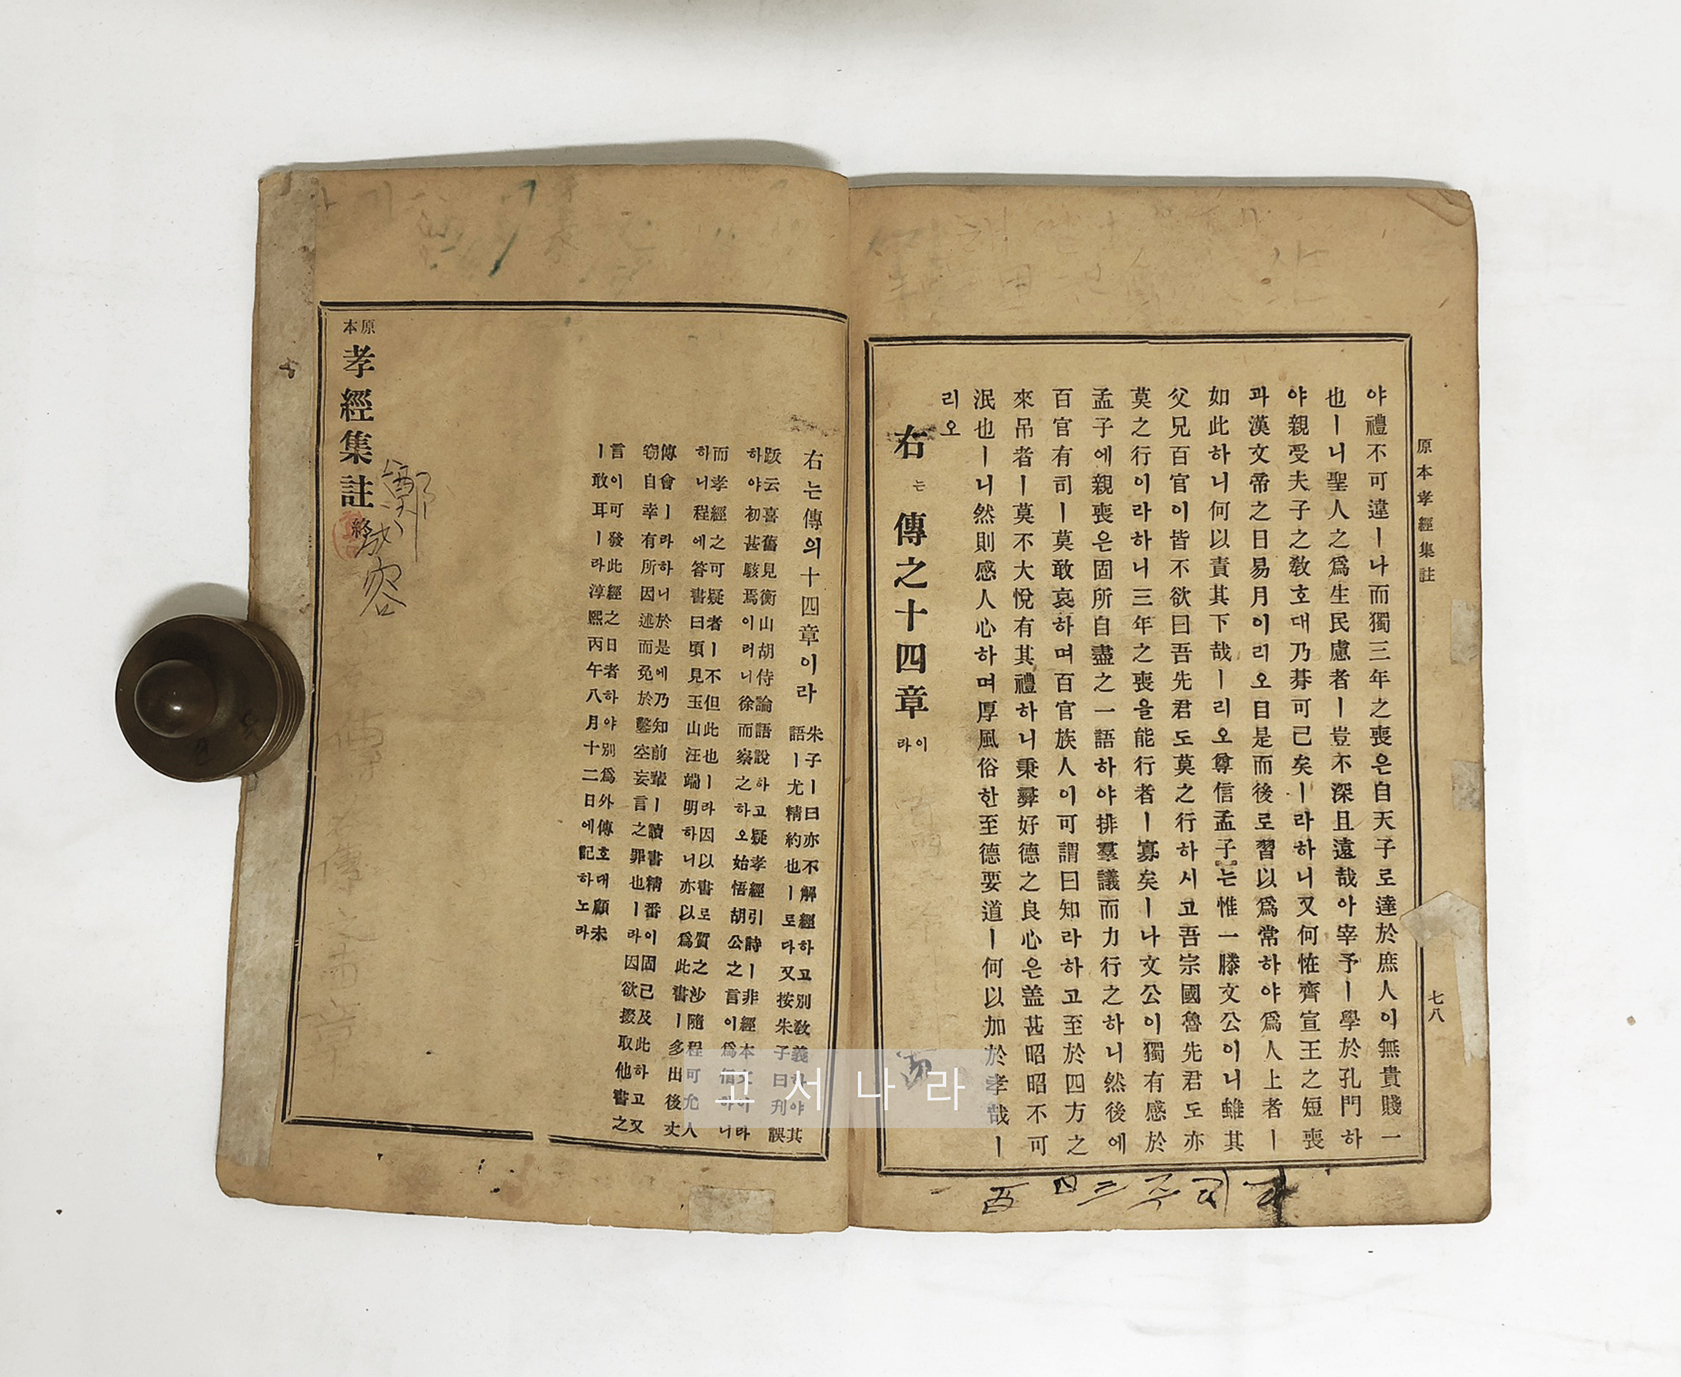 原本孝經集註
七八
야禮不可違ㅣ나而獨三年之喪은自天子로達於庶人이無貴賤一
也ㅣ니聖人之爲生民慮者ㅣ豈不深且遠哉아宰予ㅣ學於孔門하
야親受夫子之敎호대乃朞可已矣ㅣ라하니又何恠齊宣王之短喪
과漢文帝之日易月이리오自是而後로習以爲常하야爲人上者ㅣ
如此하니何以責其下哉ㅣ리오尊信孟子는惟一滕文公이니雖其
父兄百官이皆不欲曰吾先君도莫之行하시고吾宗國魯先君도亦
莫之行이라하니三年之喪을能行者ㅣ寡矣ㅣ나文公이獨有感於
孟子에親喪은固所自盡之一語하야排羣議而力行之하니然後에
百官有司ㅣ莫敢哀하며百官族人이可謂曰知라하고至於四方之
來吊者ㅣ莫不大悅有其禮하니秉彛好德之良心은盖甚昭昭不可
泯也ㅣ니然則感人心하며厚風俗한至德要道ㅣ何以加於孝哉ㅣ
리오
右는傳之十四章이라
右는傳의十四章이라
朱子ㅣ曰亦不解經하고別敎義하야其
語ㅣ尤精約也ㅣ로다又按朱子曰刋誤
跋云喜舊見衡山胡侍論語說하고疑孝經引詩ㅣ非經本文이라
하야初甚駭焉이러니徐而察之하오始悟胡公之言이爲信하니
而孝經之可疑者ㅣ不但此也ㅣ라因以書로質之沙隨程可允人
하니程에答書曰頃見玉山汪端明하니亦以爲此書ㅣ多出後丈
傳會ㅣ라하니於是에乃知前輩ㅣ讀書精番이固已及此하고又
竊自幸有所因述而免於鑿空妄言之罪也ㅣ라因欲掇取他書之
言이可發此經之日者하야別爲外傳호대顧未
ㅣ敢耳ㅣ라淳熙丙午八月十二日에記하노라
原本孝經集註終
鄭成容
고서나라